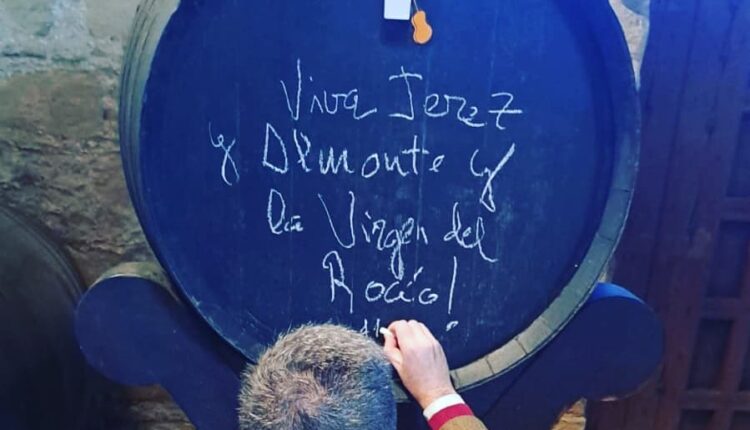 Viva Jerez
y Almonte y
la Virgen del
Rocío!